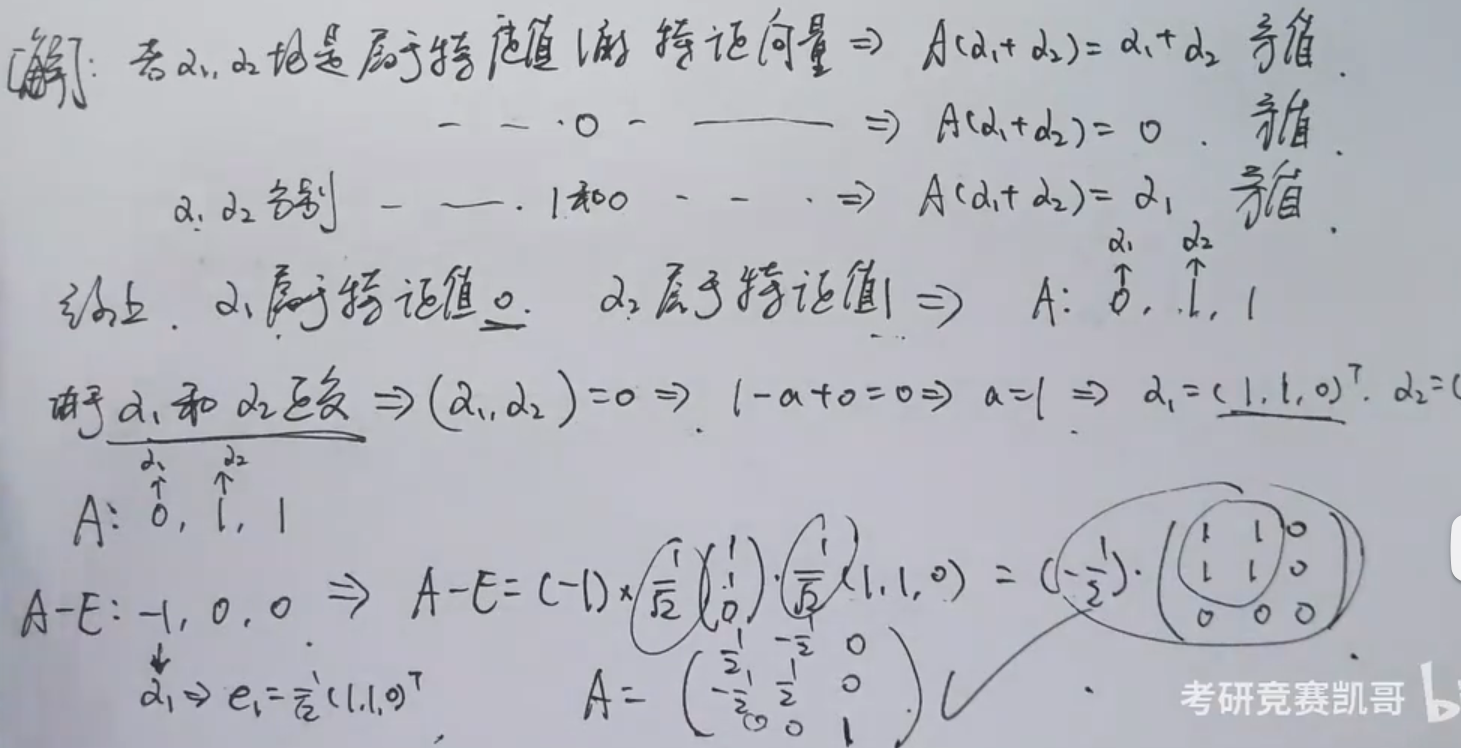 [解]: 若α₁, α₂均是属于特征值1的特征向量 ⇒ A(α₁+α₂)=α₁+α₂ 矛值.
- - ·0 - —— ⇒ A(α₁+α₂)=0. 矛值.
α₁ α₂分别 - —. 1和0 - - · ⇒ A(α₁+α₂)=α₁ 矛值.
α₁ α₂
↑ ↑
综上. α₁属于特征值0. α₂属于特征值1 ⇒ A: 0, 1, 1
由于α₁和α₂正交 ⇒ (α₁, α₂)=0 ⇒ 1-a+0=0 ⇒ a=1 ⇒ α₁=(1,1,0)ᵀ. α₂=(
α₁ α₂
↑ ↑
A: 0, 1, 1
A-E: -1, 0, 0 ⇒ A-E=(-1)×1/√2(1 1 0)·1/√2(1,1,0) = (-1/2)·(1 1 0
1 1 0
0 0 0)
↓
α₁ ⇒ e₁=1/√2(1,1,0)ᵀ
A= (1/2 -1/2 0
-1/2 1/2 0
0 0 1)
考研竞赛凯哥 b